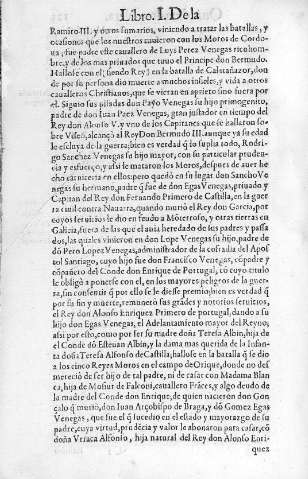 Libro. I. De la
Ramiro III. y otros sumarios, viniendo a tratar las batallas, y
ocasiones que los nuestros tuuieron con los Moros de Cordo-
ua, fue padre este cauallero de Luys Perez Venegas ricohom-
bre, y de los mas priuados que tuuo el Principe don Bermudo.
Hallose con el (siendo Rey) en la batalla de Calatañazor, don
de por su persona dio muerte a muchos infieles, y vida a otros
caualleros Christianos, que se vieran en aprieto sino fuera por
el. Siguio sus pisadas don Payo Venegas su hijo primogenito,
padre de don Iuan Paez Venegas, gran justador en tiempo del
Rey don Alonso V. y vno de los Capitanes que se hallaron so-
bre Viseo, alcançò al Rey Don Bermudo III. aunque ya su edad
le escluya de la guerra; bien es verdad q̃ lo suplia todo, Rodri-
go Sanchez Venegas su hijo mayor, con su particular pruden-
cia y esfuerço, y assi le mataron los Moros, despues de auer he
cho carniceria en ellos: pero quedò en su lugar don Sancho Ve
negas su hermano, padre q̃ fue de don Egas Venegas, priuado y
Capitan del Rey don Fernando Primero de Castilla, en la guer
ra ciuil contra Nauarra, quando murió el Rey don Garcia, por
cuyos seruicios le dio en feudo a Móterroso, y otras tierras en
Galizia, fuera de las que el auia heredado de sus padres y passa
dos, las quales vinieron en don Lope Venegas su hijo, padre de
dõ Pero Lopez Venegas, administrador de la cofradia del Apos
tol Santiago, cuyo hijo fue don Francisco Venegas, cõpadre y
cõpañero del Conde don Enrique de Portugal, cõ cuyo titulo
le obligò a ponerse con el, en los mayores peligros de la guer-
ra, sin consentir q̃ por ello se le diesse premio; bien es verdad q̃
por fin y muerte, remunerò sus grandes y notorios seruicios,
el Rey don Alonso Enriquez Primero de portugal, dando a su
hijo don Egas Venegas, el Adelantamiento mayor del Reyno;
assi por esto, como por ser su madre doña Teresa Albin, hija de
el Conde dõ Esteuan Albin, y la dama mas querida de la Infan-
ta doña Teresa Alfonso de Castilla, hallose en la batalla q̃ se dio
a los cinco Reyes Moros en el campo de Orique, donde no des
merecio de ser hijo de tal padre, ni de casar con Madama Blan
ca, hija de Mosiur de Falconi, cauallero Fráces, y algo deudo de
la madre del Conde don Enrique, de quien nacieron don Gon
çalo q̃ murió, don Iuan Arçobispo de Braga, y dõ Gomez Egas
Venegas, que fue el q̃ sucedio en el estado y mayorazgo de su
padre, cuya virtud, prudécia y valor le abonaron para casar, cõ
doña Vrraca Alfonso, hija natural del Rey don Alonso Enri-
quez